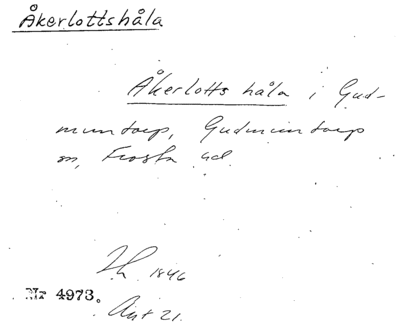 Åkerlottshåla
Åkerlotts håla i Gud-
muntorp, Gudmuntorp
sn, Frosta hd.
1846
Nr 4973.
Ant 21.